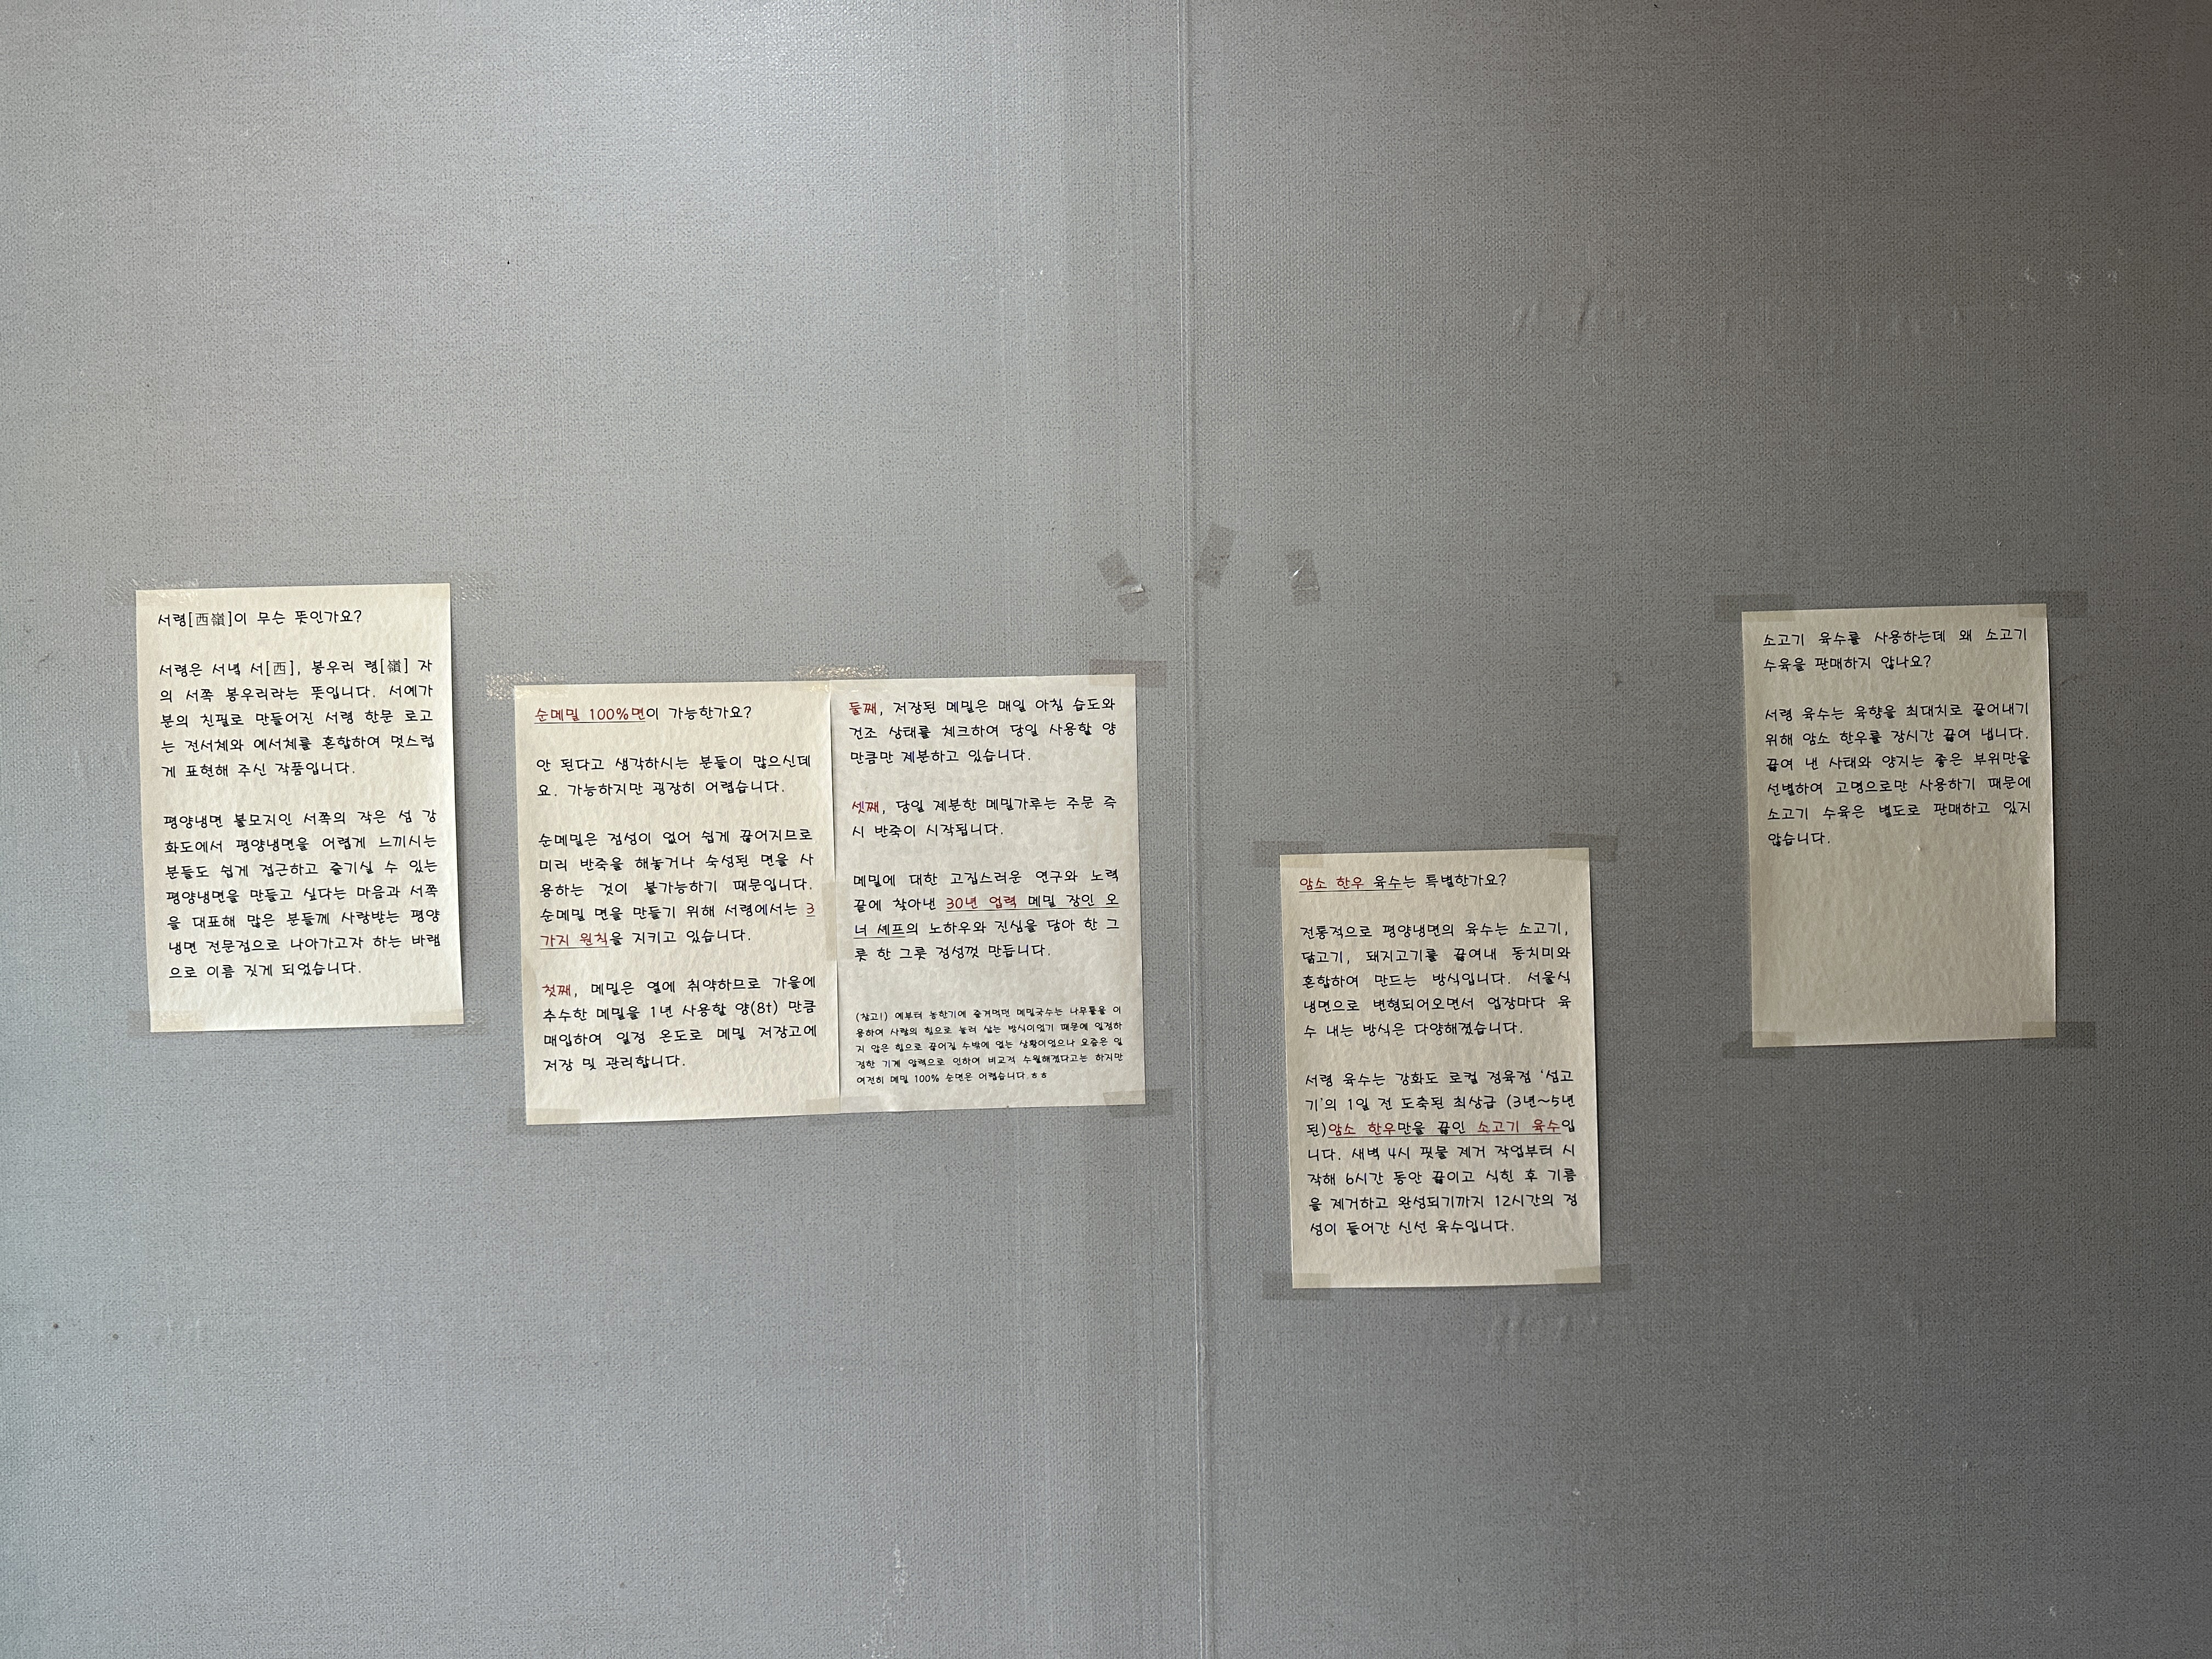 서령[西嶺]이 무슨 뜻인가요?
서령은 서녘 서[西], 봉우리 령[嶺] 자
의 서쪽 봉우리라는 뜻입니다. 서예가
분의 친필로 만들어진 서령 한문 로고
는 전서체와 예서체를 혼합하여 멋스럽
게 표현해 주신 작품입니다.
평양냉면 불모지인 서쪽의 작은 섬 강
화도에서 평양냉면을 어렵게 느끼시는
분들도 쉽게 접근하고 즐기실 수 있는
평양냉면을 만들고 싶다는 마음과 서쪽
을 대표해 많은 분들께 사랑받는 평양
냉면 전문점으로 나아가고자 하는 바램
으로 이름 짓게 되었습니다.
순메밀 100%면이 가능한가요?
안 된다고 생각하시는 분들이 많으신데
요. 가능하지만 굉장히 어렵습니다.
순메밀은 점성이 없어 쉽게 끊어지므로
미리 반죽을 해놓거나 숙성된 면을 사
용하는 것이 불가능하기 때문입니다.
순메밀 면을 만들기 위해 서령에서는 3
가지 원칙을 지키고 있습니다.
첫째, 메밀은 열에 취약하므로 가을에
추수한 메밀을 1년 사용할 양(8t) 만큼
매입하여 일정 온도로 메밀 저장고에
저장 및 관리합니다.
둘째, 저장된 메밀은 매일 아침 습도와
건조 상태를 체크하여 당일 사용할 양
만큼만 제분하고 있습니다.
셋째, 당일 제분한 메밀가루는 주문 즉
시 반죽이 시작됩니다.
메밀에 대한 고집스러운 연구와 노력
끝에 찾아낸 30년 업력 메밀 장인 오
너 셰프의 노하우와 진심을 담아 한 그
릇 한 그릇 정성껏 만듭니다.
(참고!) 예부터 농한기에 즐겨먹던 메밀국수는 나무틀을 이
용하여 사람의 힘으로 눌러 삶는 방식이었기 때문에 일정하
지 않은 힘으로 끊어질 수밖에 없는 상황이었으나 요즘은 일
정한 기계 압력으로 인하여 비교적 수월해졌다고는 하지만
여전히 메밀 100% 순면은 어렵습니다.ㅎㅎ
암소 한우 육수는 특별한가요?
전통적으로 평양냉면의 육수는 소고기,
닭고기, 돼지고기를 끓여내 동치미와
혼합하여 만드는 방식입니다. 서울식
냉면으로 변형되어오면서 업장마다 육
수 내는 방식은 다양해졌습니다.
서령 육수는 강화도 로컬 정육점 '섬고
기'의 1일 전 도축된 최상급 (3년~5년
된)암소 한우만을 끓인 소고기 육수입
니다. 새벽 4시 핏물 제거 작업부터 시
작해 6시간 동안 끓이고 식힌 후 기름
을 제거하고 완성되기까지 12시간의 정
성이 들어간 신선 육수입니다.
소고기 육수를 사용하는데 왜 소고기
수육을 판매하지 않나요?
서령 육수는 육향을 최대치로 끌어내기
위해 암소 한우를 장시간 끓여 냅니다.
끓여 낸 사태와 양지는 좋은 부위만을
선별하여 고명으로만 사용하기 때문에
소고기 수육은 별도로 판매하고 있지
않습니다.